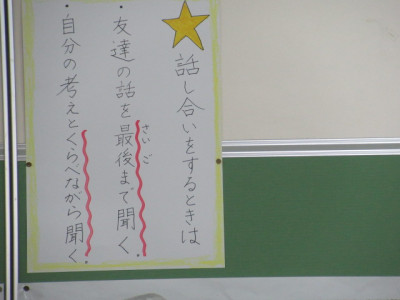 話し合いをするときは
・友達の話を最後まで聞く。
さいご
・自分の考えとくらべながら聞く。